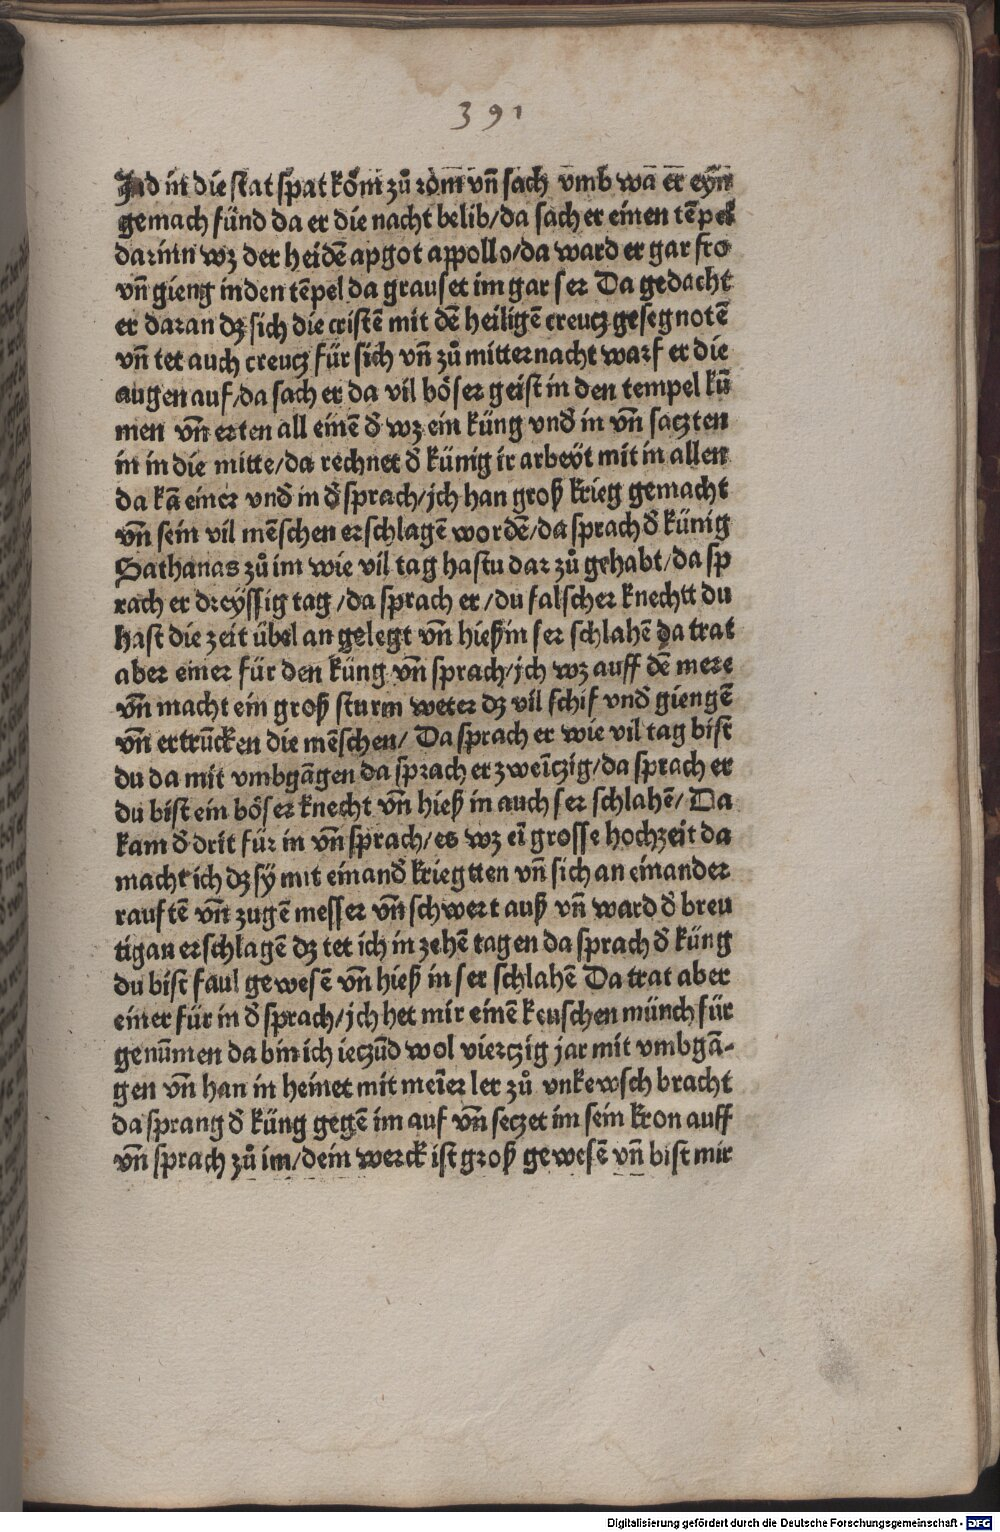 391
Jud in die stat spat köm zů röm vn̄ sach vmb wa er eyn
gemach fünd da er die nacht belib/da sach er einen tēpel
darinn wz der heidē apgot appollo/da ward er gar fro
vn̄ gieng in den tēpel da grauset im gar ser Da gedacht
er daran dz sich die cristē mit dē heiligē creucz gesegnotē
vn̄ tet auch creucz für sich vn̄ zů mitternacht warf er die
augen auf/da sach er da vil böser geist in den tempel kū
men vn̄ erten all einē đ wz ein küng vnđ in vn̄ saczten
in in die mitte/da rechnet đ künig ir arbeÿt mit in allen
da kā einer vnđ in đ sprach/jch han groß krieg gemacht
vn̄ sein vil mēschen erschlagē wordē/da sprach đ künig
Sathanas zů im wie vil tag hastu dar zů gehabt/da sp
rach er dreÿssig tag/da sprach er/du falscher knechtt du
hast die zeit übel an gelegt vn̄ hieß in ser schlahē da trat
aber einer für den küng vn̄ sprach/jch wz auff dē mere
vn̄ macht ein groß sturm weter dz vil schif vnđ giengē
vn̄ ertrūcken die mēschen/ Da sprach er wie vil tag bist
du da mit vmbgāgen da sprach er zweīczig/da sprach er
du bist ein böser knecht vn̄ hieß in auch ser schlahē/ Da
kam đ drit für in vn̄ sprach/es wz eī grosse hochzeit da
macht ich dz sÿ mit einanđ kriegtten vn̄ sich an einander
rauftē vn̄ zugē messer vn̄ schwert auß vn̄ ward đ breu
tigan erschlagē dz tet ich in zehē tagen da sprach đ küng
du bist faul gewesē vn̄ hieß in ser schlahē Da trat aber
einer für in đ sprach/jch het mir einē keuschen münch für
genūmen da bin ich ieczūd wol vierczig jar mit vmbgā-
gen vn̄ han in heinet mit meīer ler zů vnkewsch bracht
da sprang đ küng gegē im auf vn̄ seczet im sein kron auff
vn̄ sprach zů im/dein werck ist groß gewesē vn̄ bist mir
Digitalisierung gefördert durch die Deutsche Forschungsgemeinschaft - DFG